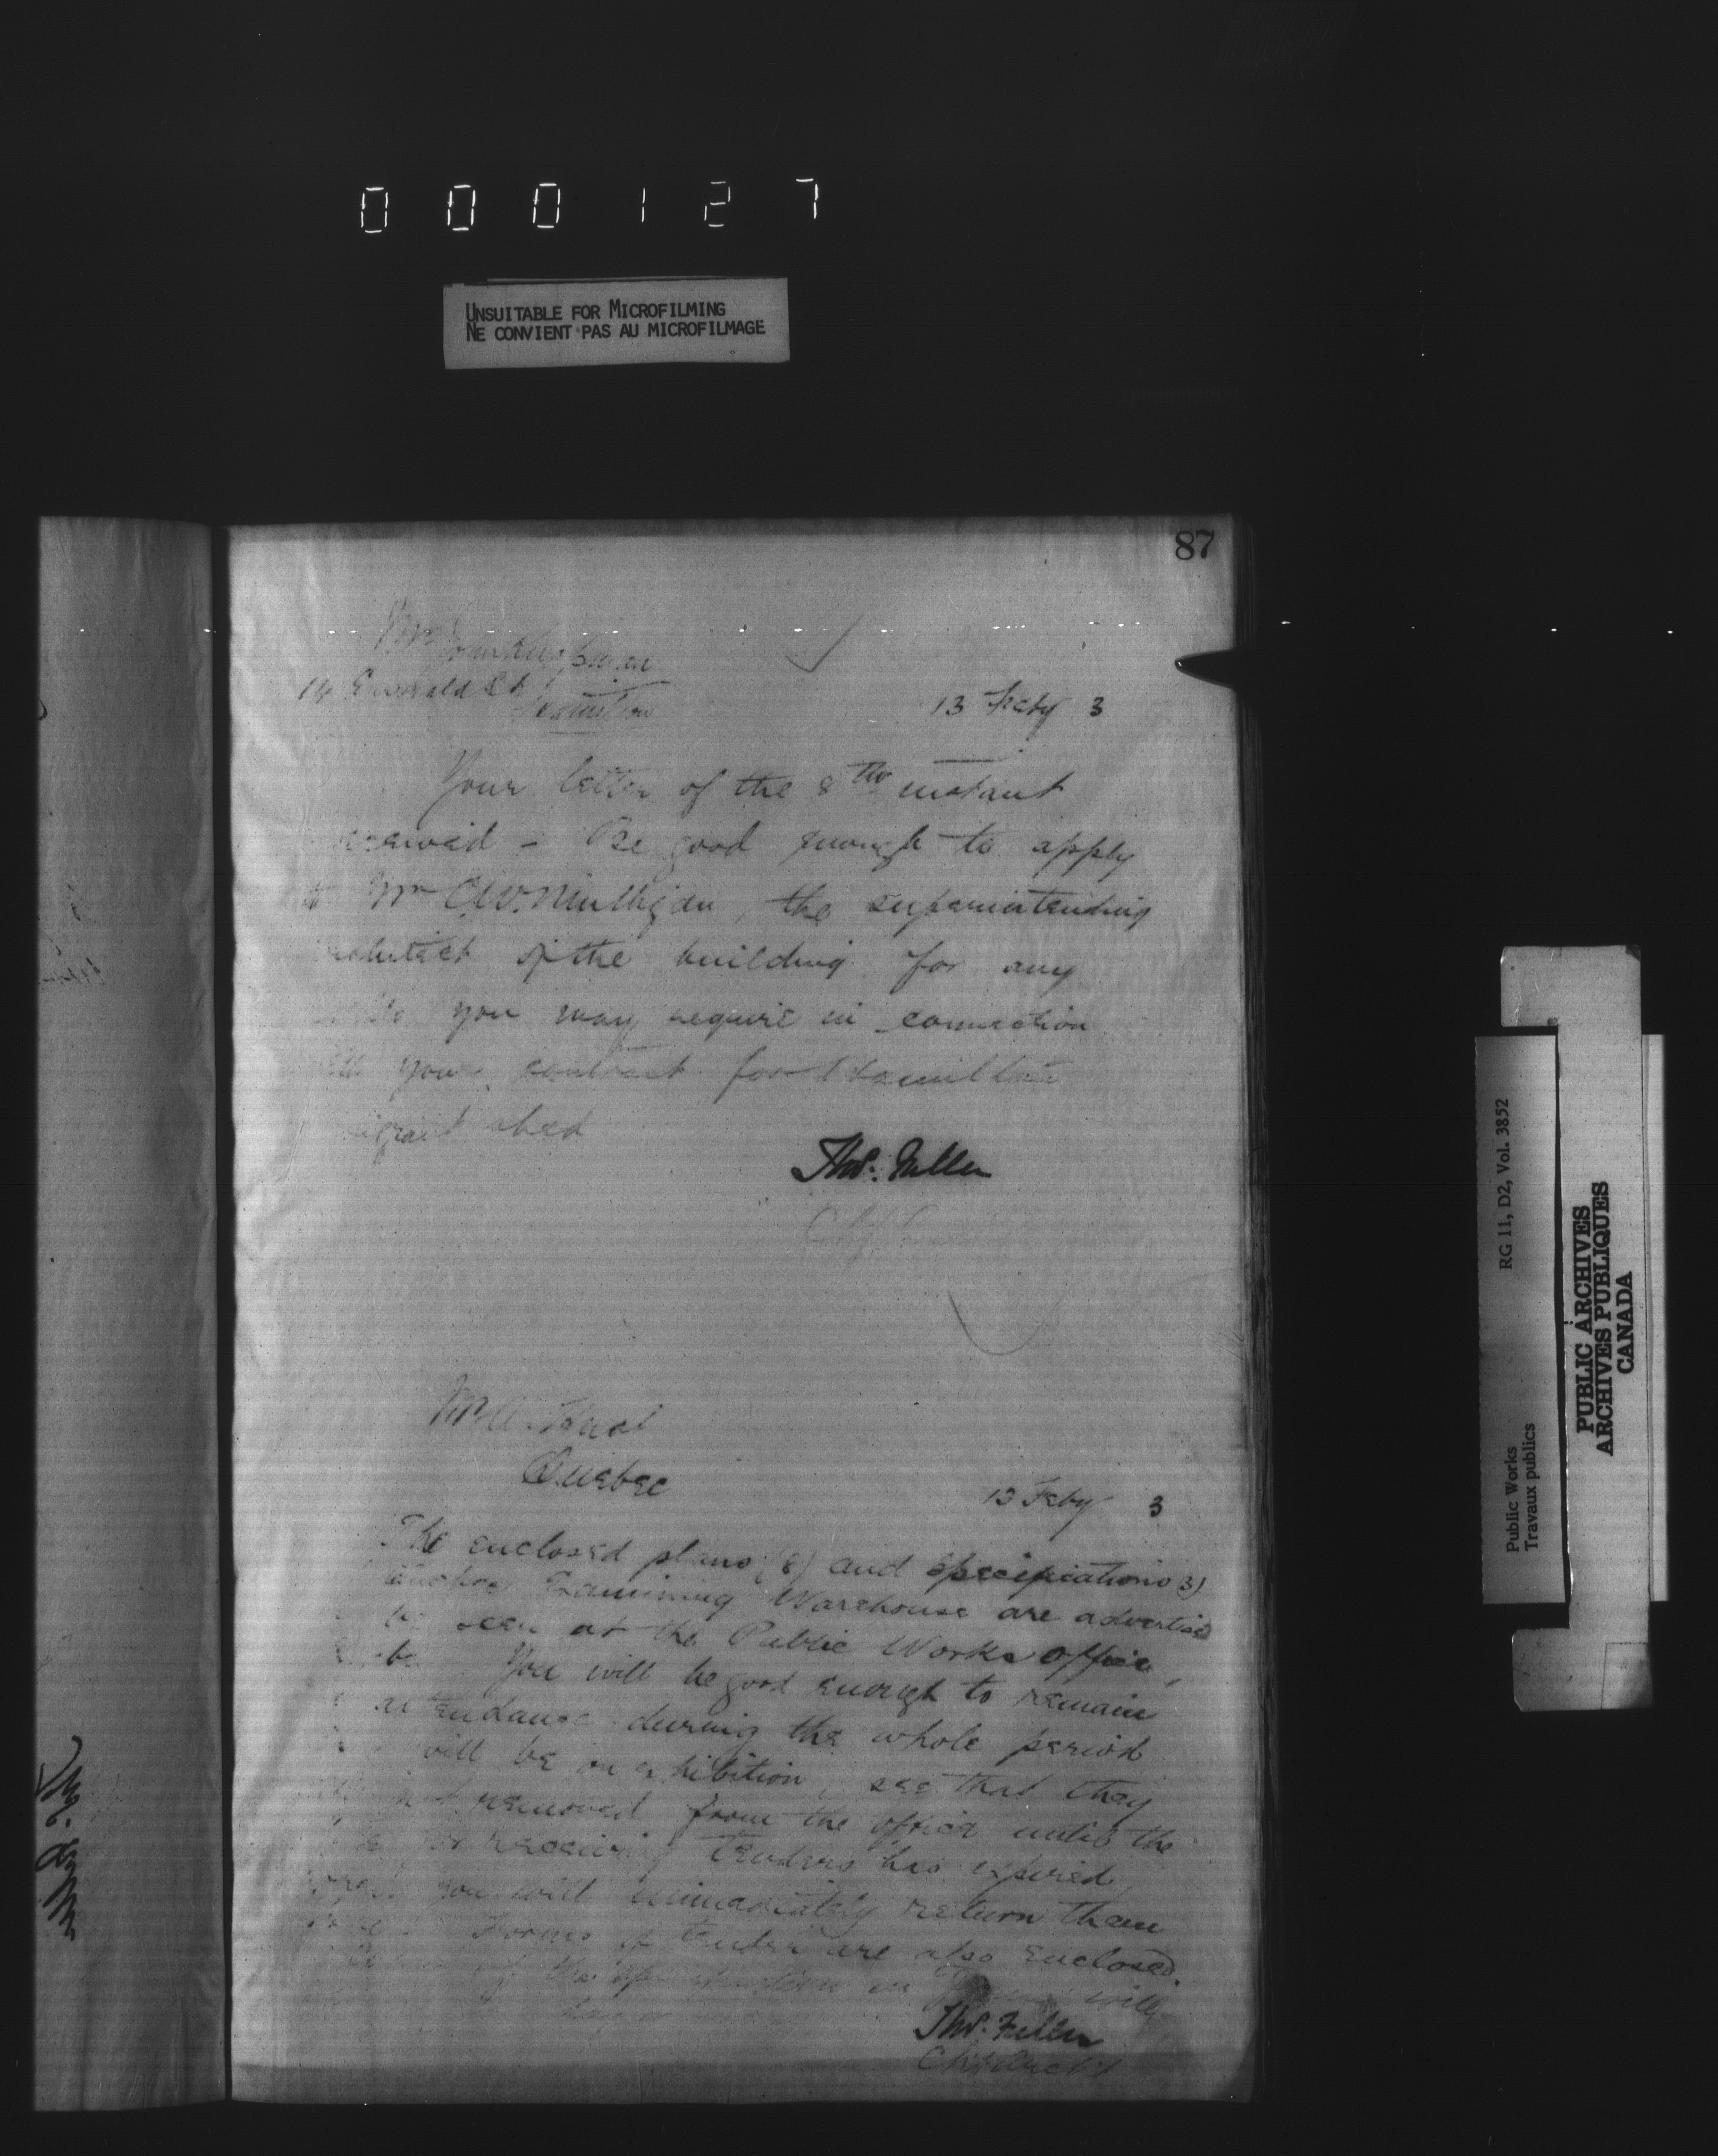 000127
UNSUITABLE FOR MICROFILMING
NE CONVIENT PAS AU MICROFILMAGE
87
Mr John
14 Emerald St
13 Feby 3
Your letter of the 8th instant
received - Be good enough to apply
to Mr C.W. Mulligan, the superintending
architect of the building for any
you may require in connection
your contract for Hamilton
shed
Thos. Fuller
Mr A.
Quebec
13 Feby 3
The enclosed plans (8) and specifications (3)
Examining Warehouse are advertised
be seen at the Public Works office,
You will be good enough to remain
attendance during the whole period
will be on exhibition, see that they
not removed from the office until the
for receiving tenders has expired,
you will immediately return them
Forms of tender are also enclosed.
of the in will
Thos. Fuller
Chf Archt
Thos. Fuller
Public Works
Travaux publics
RG 11, D2, Vol. 3852
PUBLIC ARCHIVES
ARCHIVES PUBLIQUES
CANADA